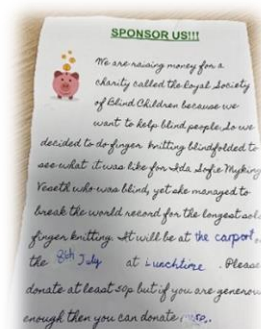 SPONSOR US!!!
We are raising money for a
charity called the Royal Society
of Blind Children because we
want to help blind people. So we
decided to do finger knitting blindfolded to
see what it was like for Ida Sofie Myking
Veseth who was blind, yet she managed to
break the world record for the longest solo
finger knitting. It will be at the carport on
the 8th July at Lunchtime . Please
donate at least 50p but if you are generous
enough then you can donate